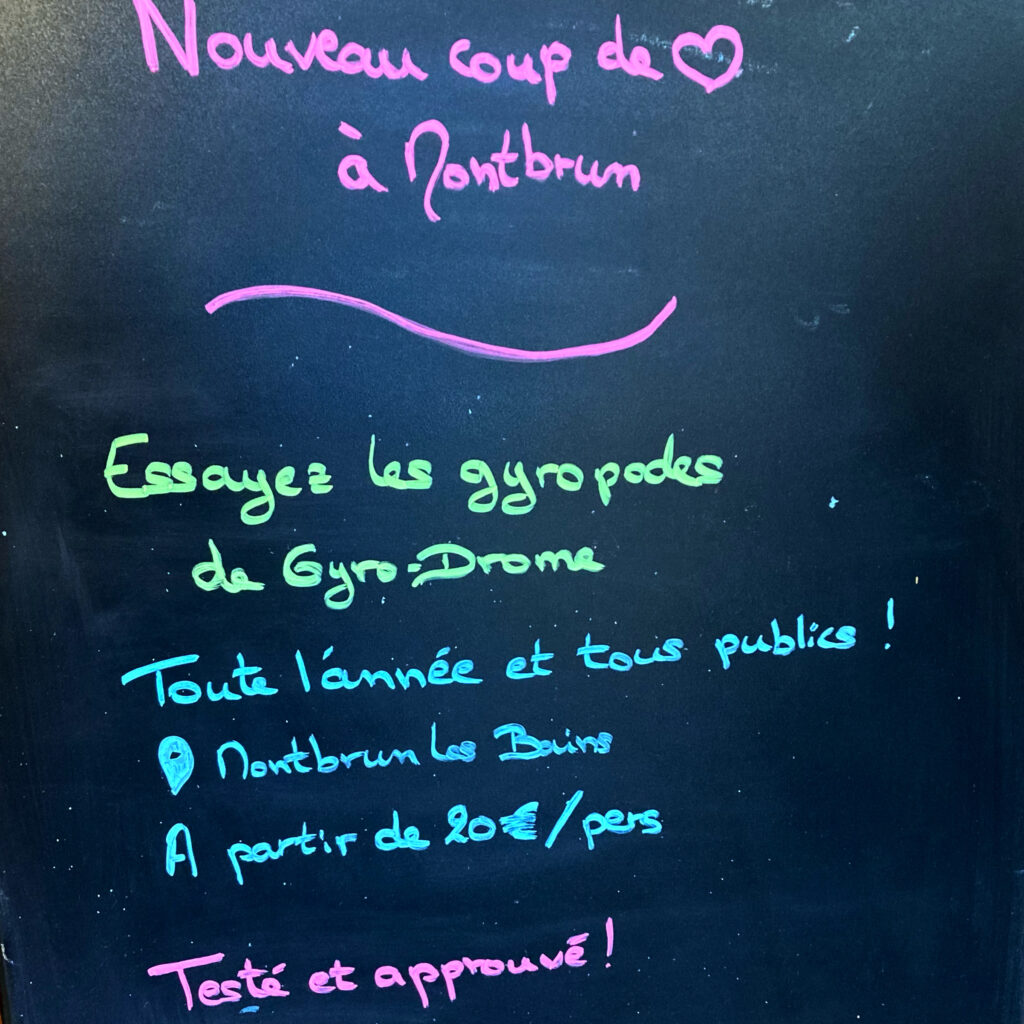 Nouveau coup de ♡
à Montbrun
Essayez les gyropodes
de Gyro-Drome
Toute l'année et tous publics !
Montbrun les Bains
A partir de 20€/pers
Testé et approuvé !